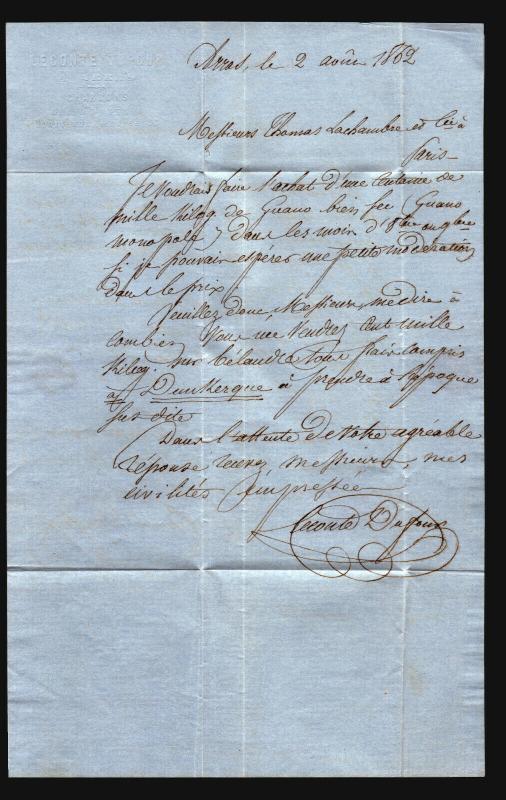 LECONTE DUFOUR
Arras, le 2 août 1862
Messieurs Thomas Lachambre et Cie à
Paris
Je voudrais faire l'achat d'une centaine de
mille kilog de Guano bien sec (Guano
monopole) dans les mois d'8bre ou 9bre
si je pouvais espérer une petite modération
dans le prix
Veuillez donc, Messieurs, me dire à
combien vous me vendrez cent mille
kilog. sur bélandre tous frais compris
à Dunkerque à prendre à l'époque
sus dite
Dans l'attente de votre agréable
réponse recevez, messieurs, mes
civilités empressées
Leconte Dufour